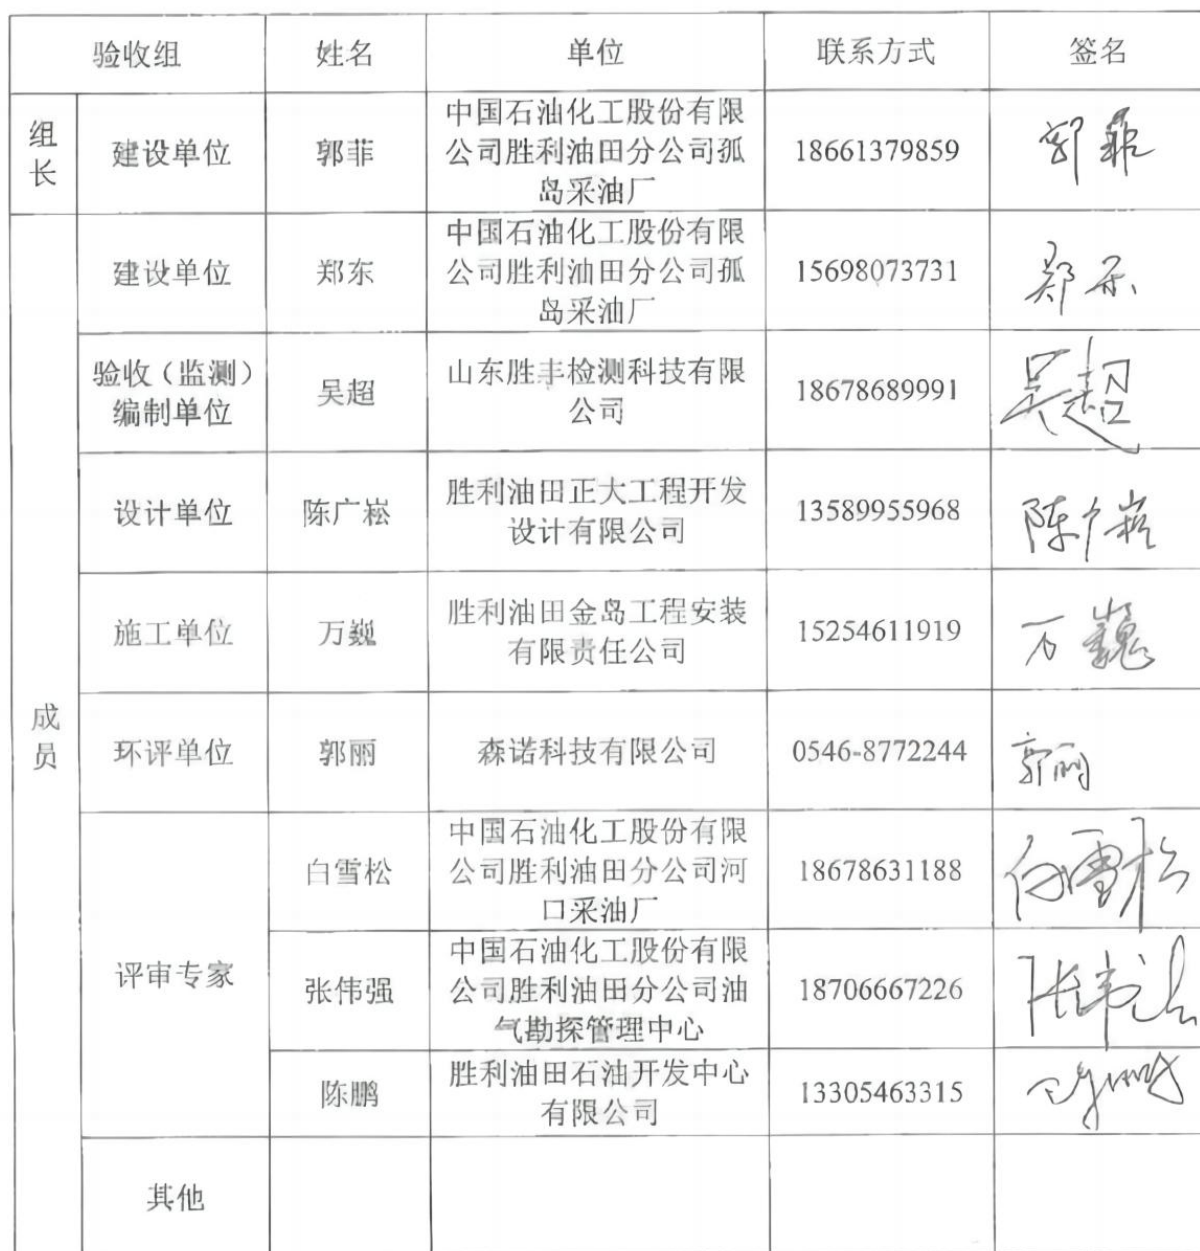 验收组 姓名 单位 联系方式 签名
组长 建设单位 郭菲 中国石油化工股份有限公司胜利油田分公司孤岛采油厂 18661379859 郭菲
成员 建设单位 郑东 中国石油化工股份有限公司胜利油田分公司孤岛采油厂 15698073731 郑东
验收（监测）编制单位 吴超 山东胜丰检测科技有限公司 18678689991 吴超
设计单位 陈广崧 胜利油田正大工程开发设计有限公司 13589955968 陈广崧
施工单位 万巍 胜利油田金岛工程安装有限责任公司 15254611919 万巍
环评单位 郭丽 森诺科技有限公司 0546-8772244 郭丽
评审专家 白雪松 中国石油化工股份有限公司胜利油田分公司河口采油厂 18678631188 白雪松
张伟强 中国石油化工股份有限公司胜利油田分公司油气勘探管理中心 18706667226 张伟强
陈鹏 胜利油田石油开发中心有限公司 13305463315
其他